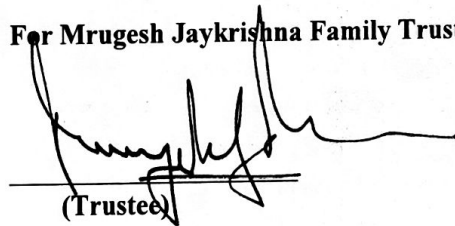 For Mrugesh Jaykrishna Family Trust
(Trustee)